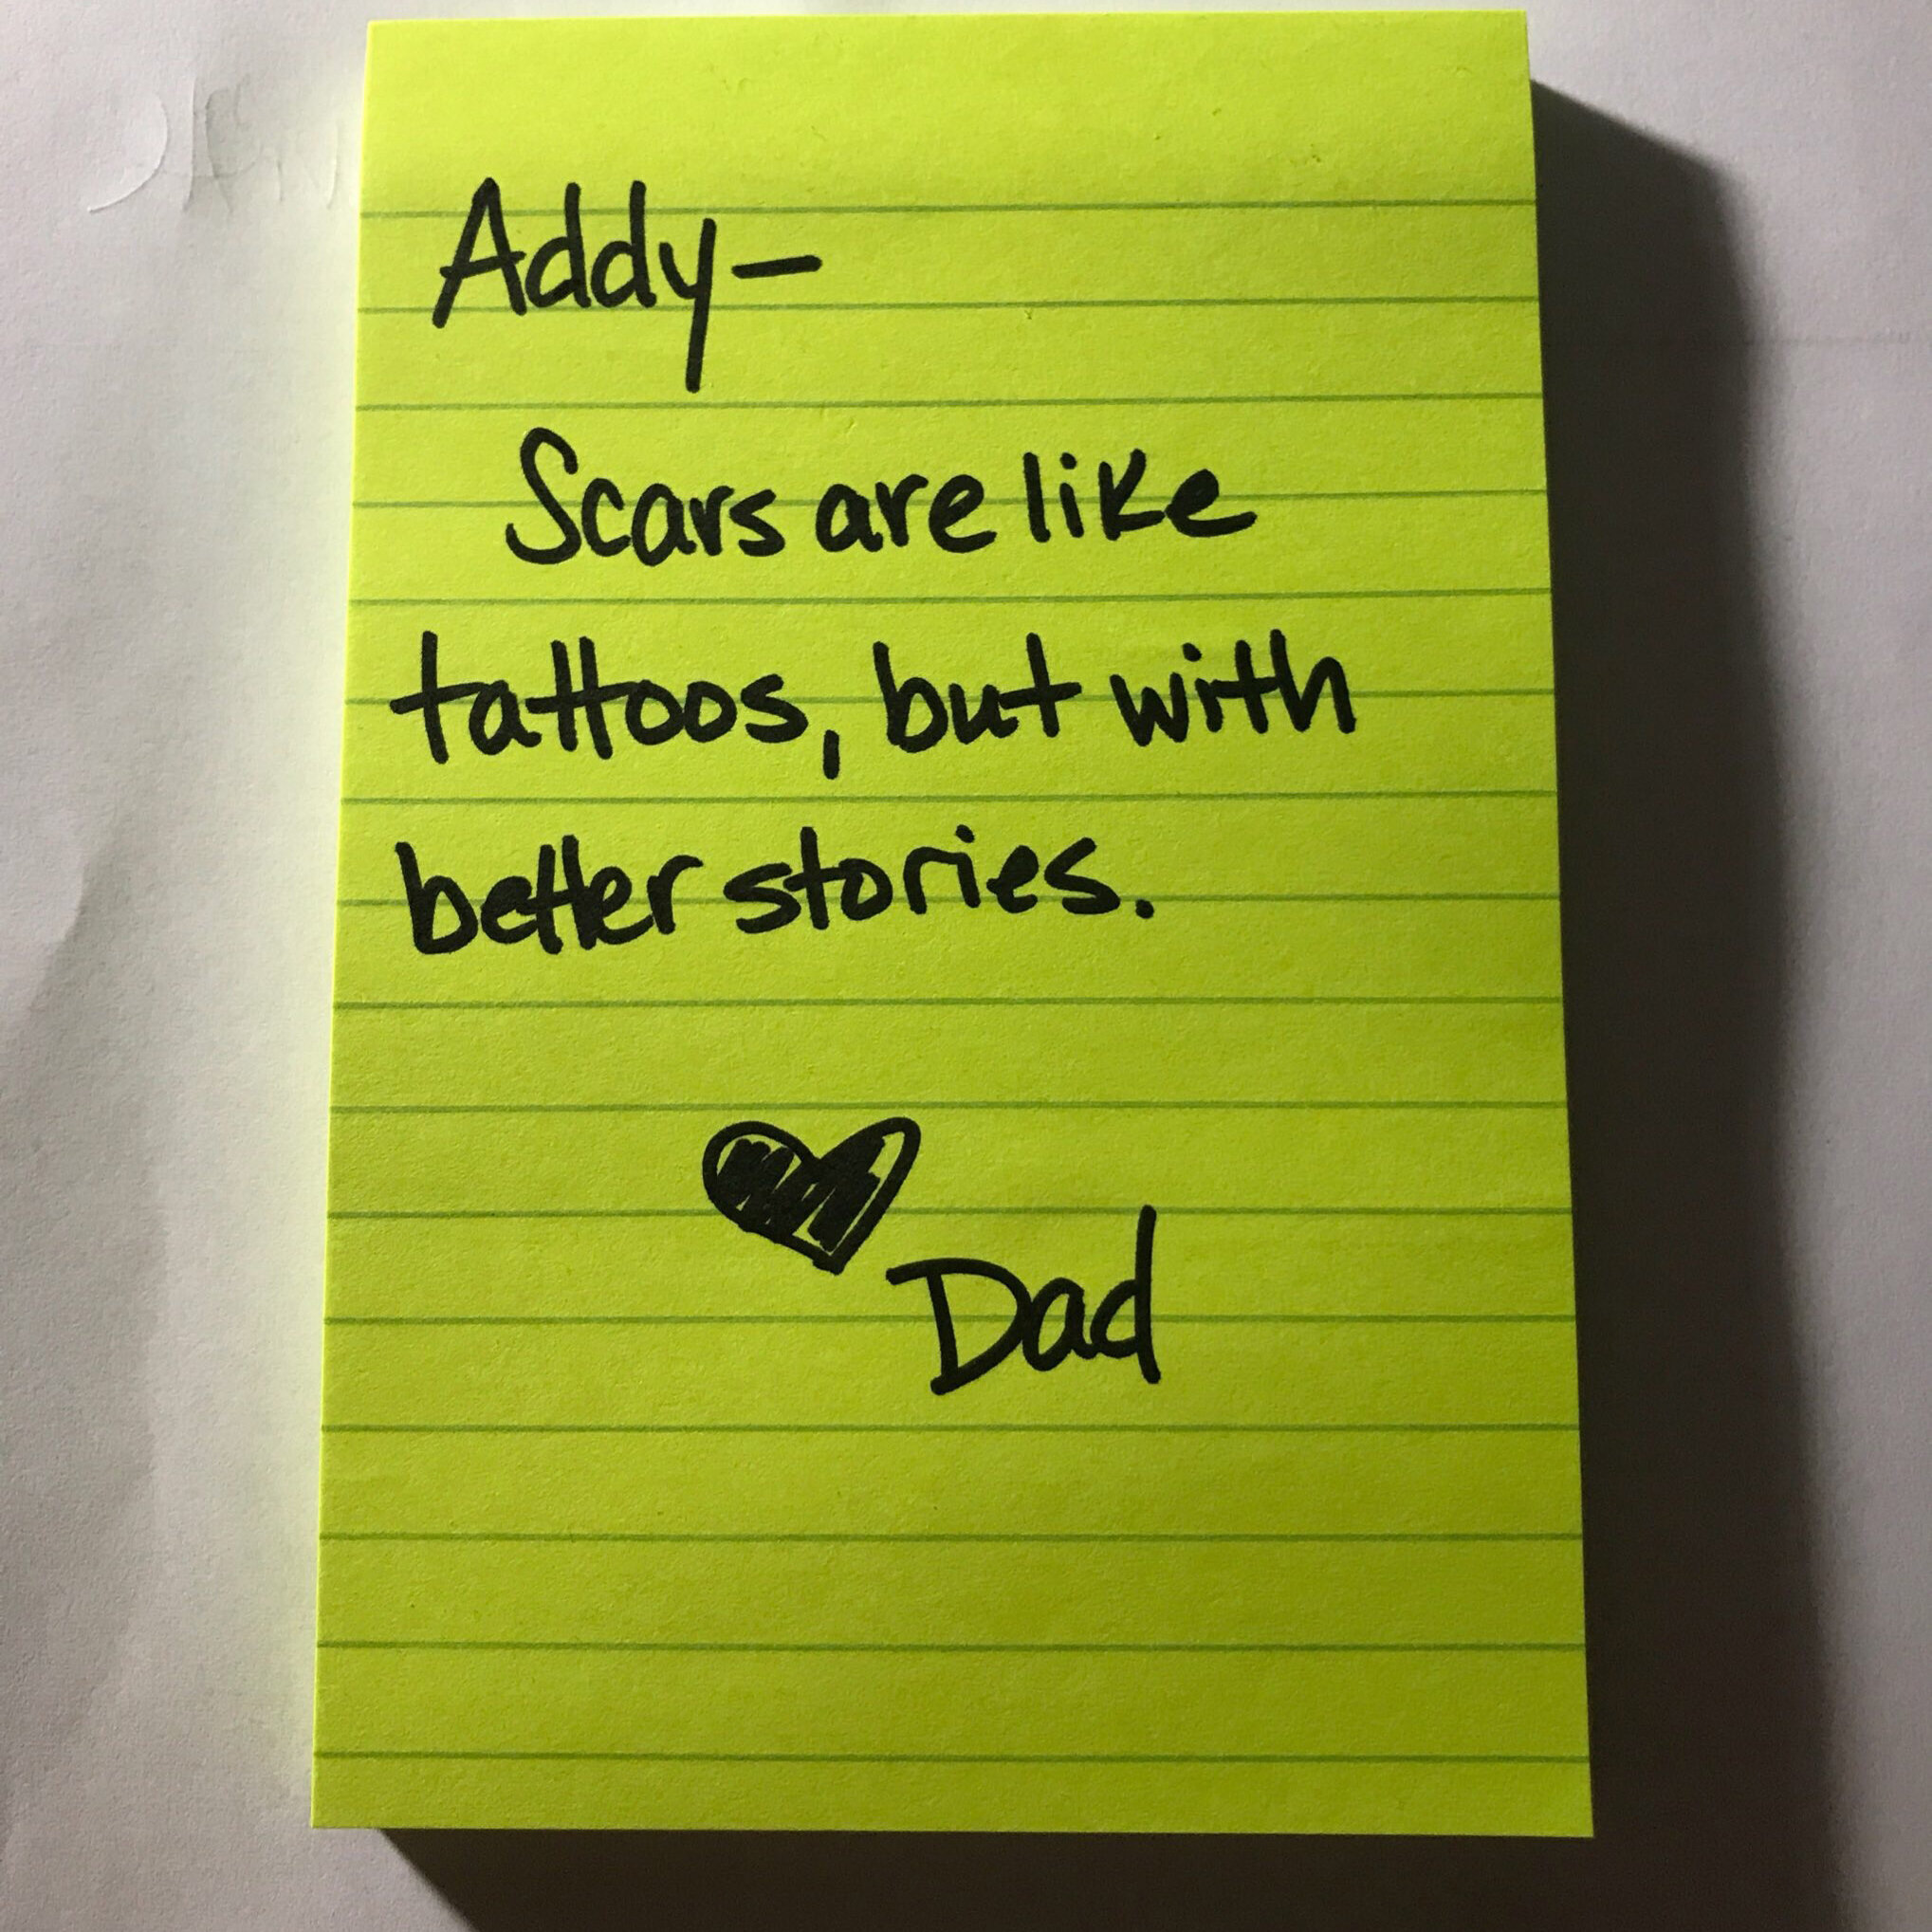 Addy-
Scars are like
tattoos, but with
better stories.
Dad